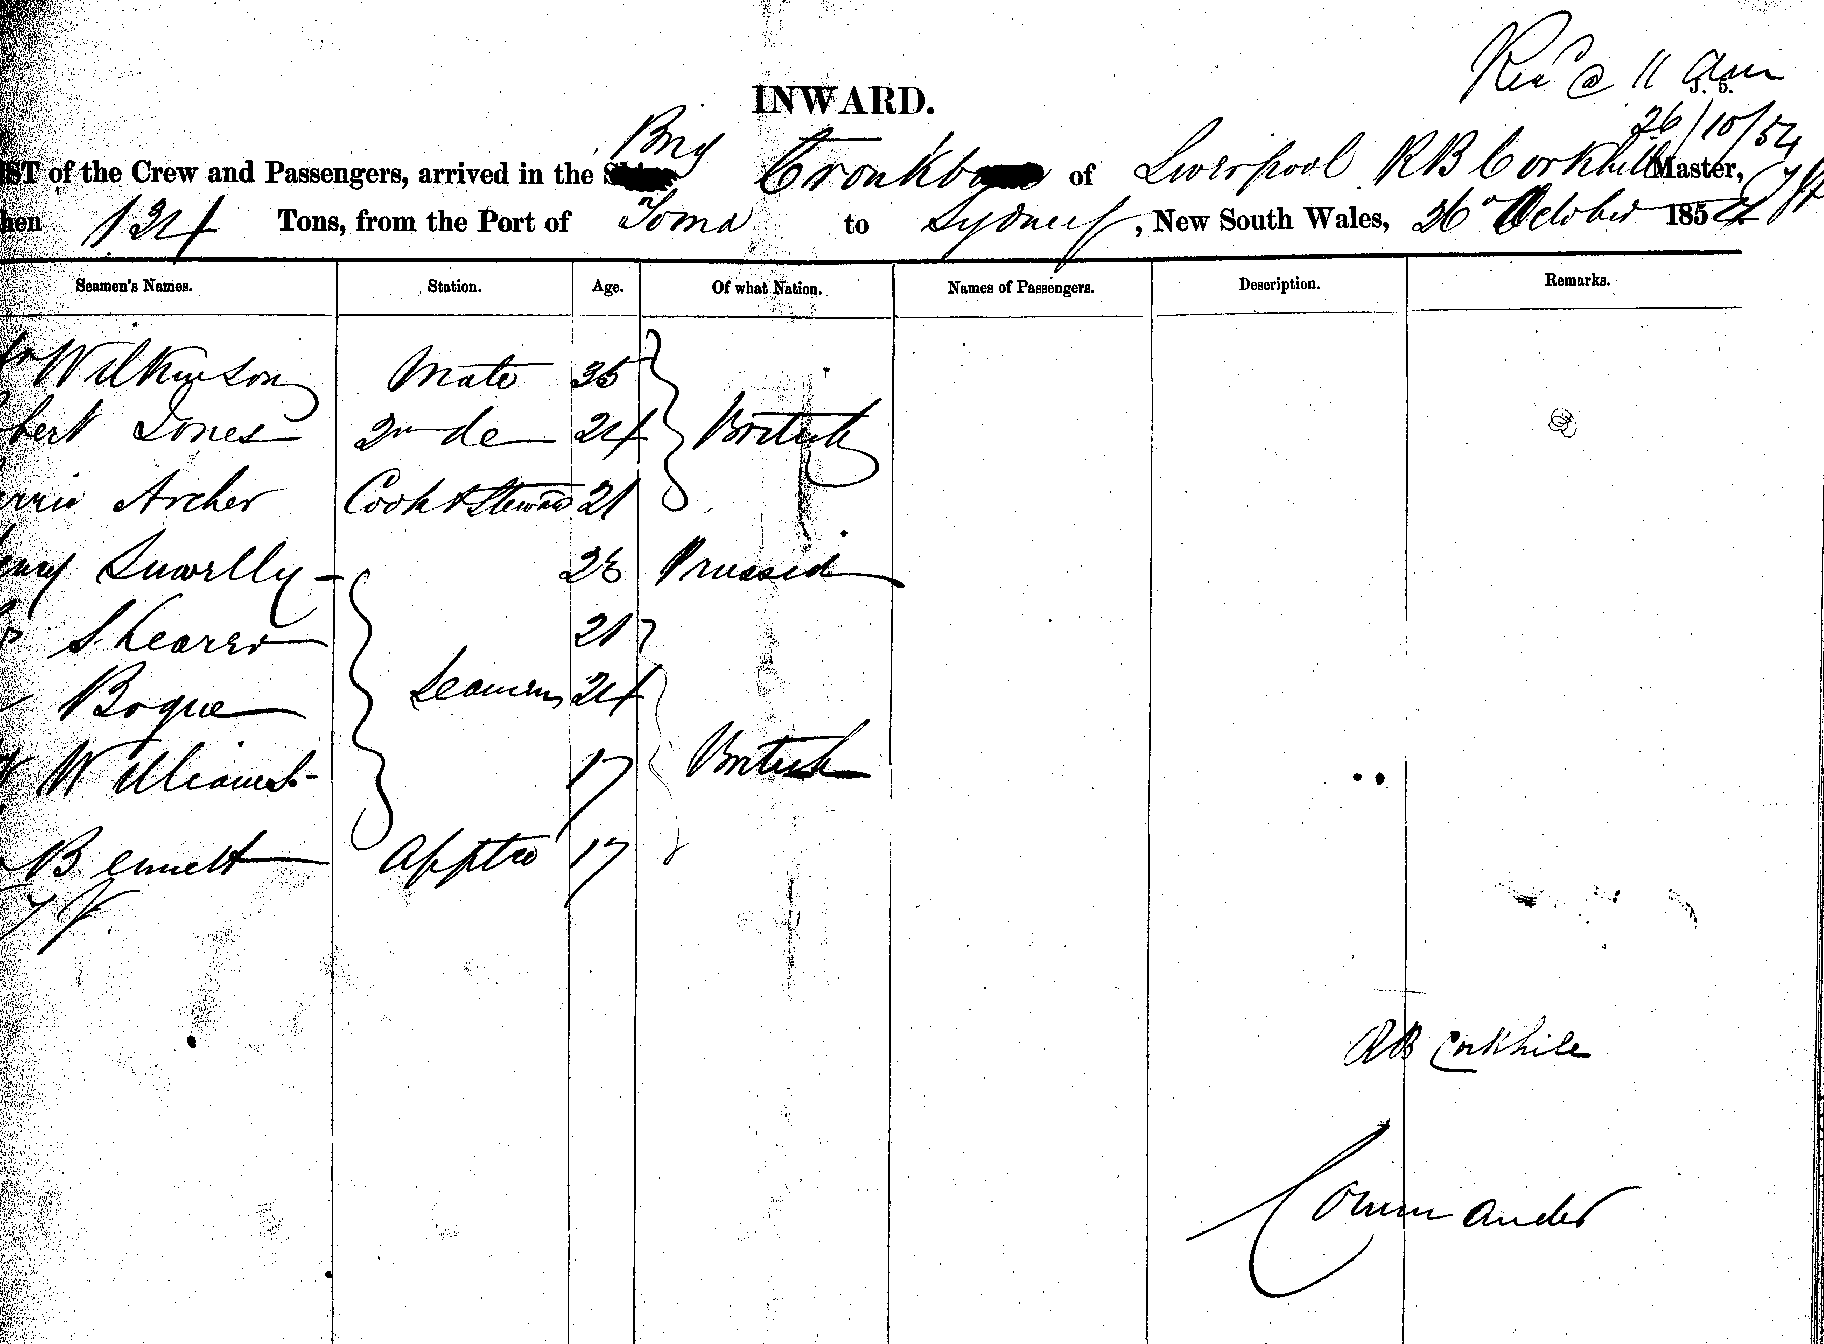 Recd @ 11 am
J. 5.
INWARD.
26/10/54
Brig
ST of the Crew and Passengers, arrived in the of Liverpool R B Corkhill Master,
hen 134 Tons, from the Port of Toma to Sydney, New South Wales, 26 October 1854
Seamen's Names. Station. Age. Of what Nation. Names of Passengers. Description. Remarks.
Wilkinson Mate 35
bert Jones 2nd do 24 British
Archer Cook & Steward 21
28 Prussia
Shearer 21
Bogue Seamen 24
Williams 17 British
Bennett Apptce 17
RB Corkhill
Commander